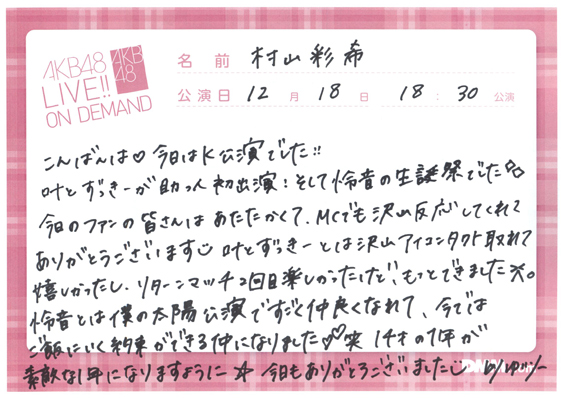 AKB48
LIVE!!
ON DEMAND
AKB
48
名前 村山彩希
公演日 12月18日 18:30公演
こんばんは♡今日はK公演でした!!
叶とずっきーが助っ人初出演!そして怜音の生誕祭でした
今日のファンの皆さんはあたたかくて、MCでも沢山反応してくれて
ありがとうございます 叶とずっきーとは沢山アイコンタクト取れて
嬉しかったし、リターンマッチ2回目楽しかったけど、もっとできました
怜音とは僕の太陽公演ですごく仲良くなれて、今では
ご飯にいく約束ができる仲になりました♡笑 14才の1年が
素敵な1年になりますように☆ 今日もありがとうございました by ゆいりー